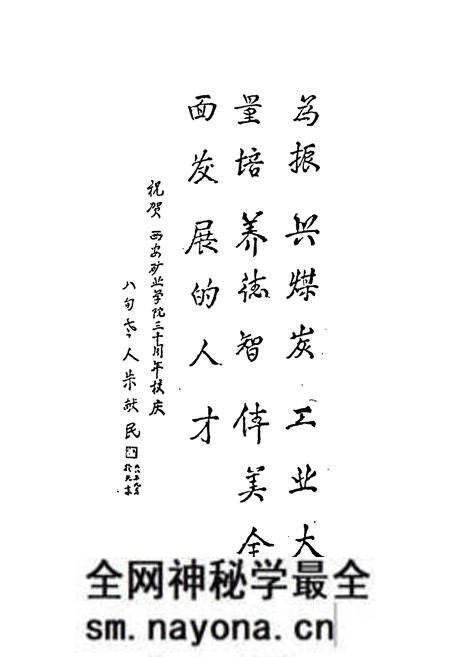 為振兴煤炭工业大
量培养德智体美全
面发展的人才
祝贺西安矿业学院三十周年校庆
八旬老人献民
全网神秘学最全
sm.nayona.cn